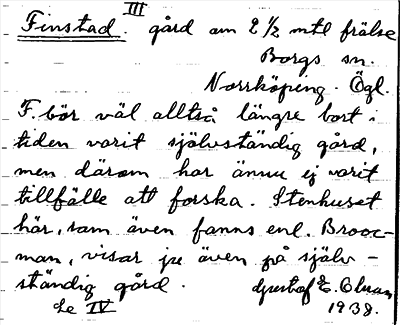 III
Finstad. gård om 2 1/2 mtl frälse
Borgs sn.
Norrköping. Ögl.
F. bör väl alltså längre bort i
tiden varit självständig gård,
men därom har ännu ej varit
tillfälle att forska. Stenhuset
här, som även fanns enl. Brooc-
man, visar ju även på själv-
ständig gård.
Gustaf E.
Se IV 1938.